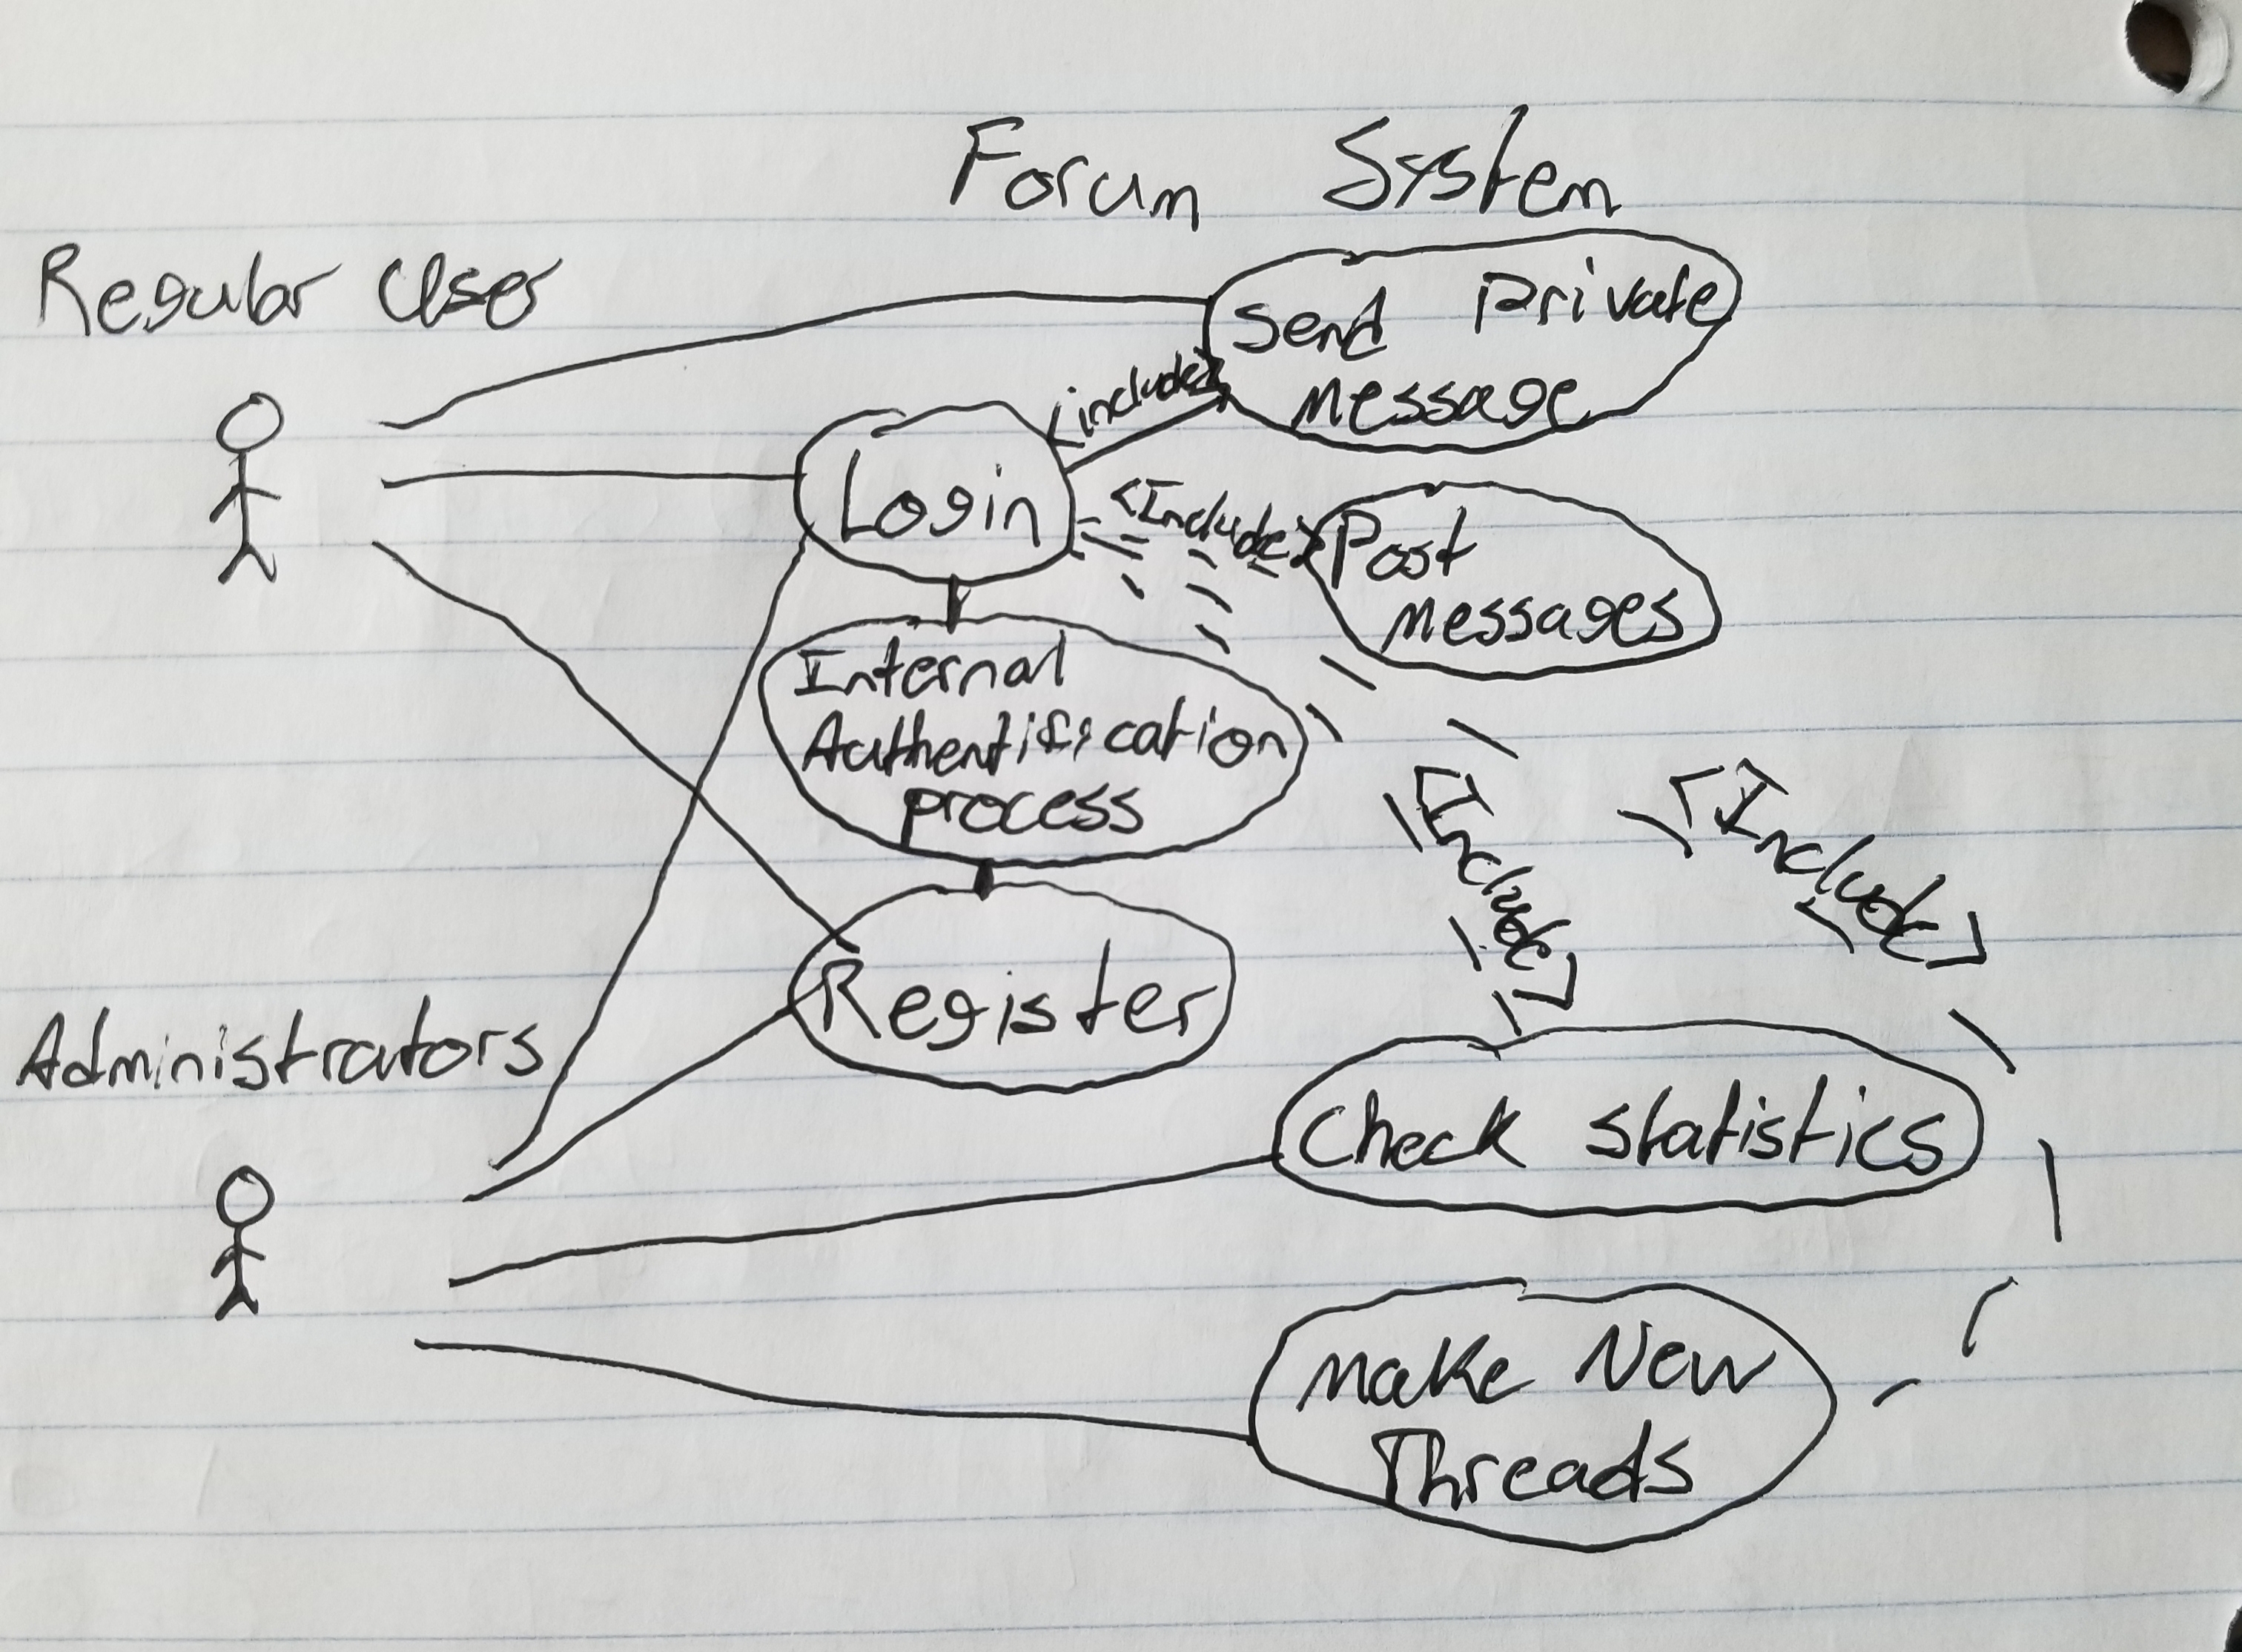 Forum System
Regular User
Send Private
Message
<include>
Login
<Include>
Post
Messages
Internal
Authentification
process
<Include>
<Include>
Register
Administrators
Check Statistics
Make New
Threads